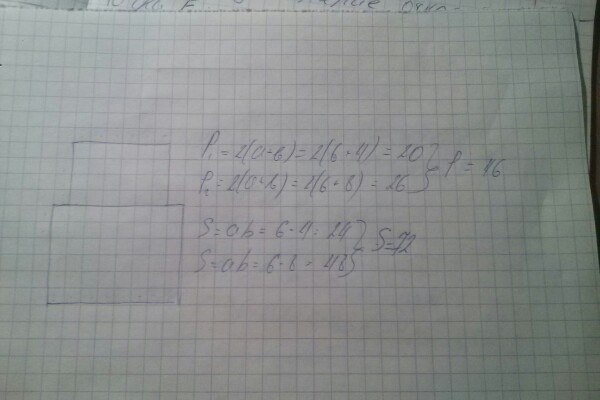 P₁ = 2(a+b) = 2(6+4) = 20
P₂ = 2(a+b) = 2(6+8) = 26
} P = 46
S = ab = 6·4 = 24
S = ab = 6·8 = 48
} S = 72